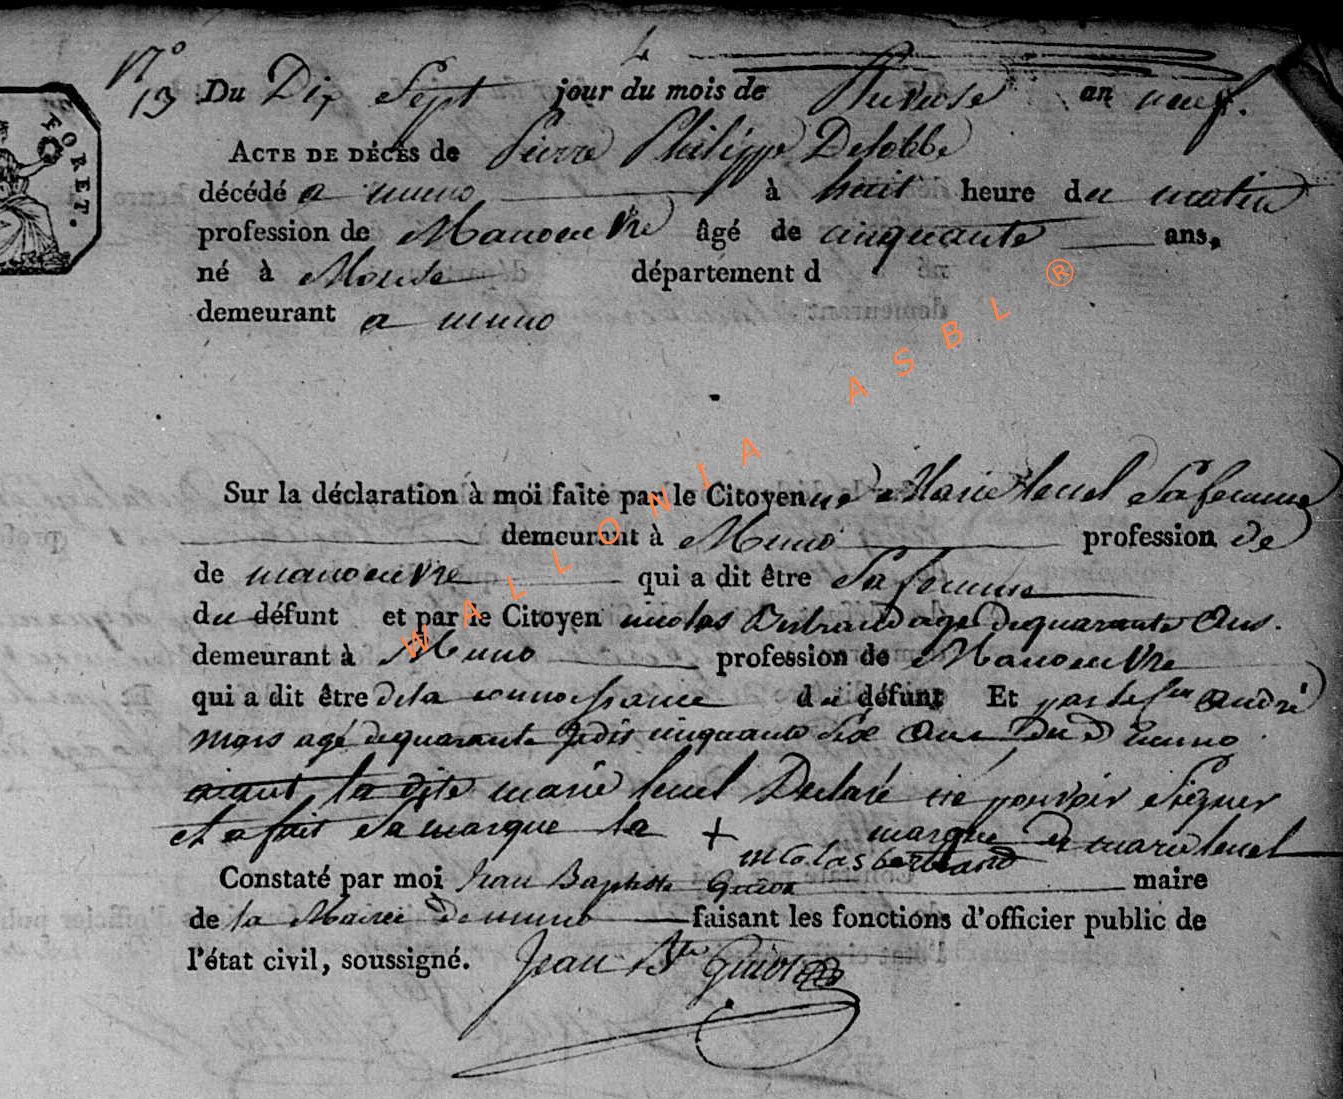 N°
13
FORET.
Le
Du Dix Sept jour du mois de Pluviose an neuf.
ACTE DE DÉCÈS de Pierre Philippe Delobbe
décédé a muno à huit heure du matin
profession de Manoeuvre âgé de cinquante ans,
né à département d
demeurant a muno
Sur la déclaration à moi faite par le Citoyenne Marie lenel Sa femme
demeurant à Muno profession de
de manoeuvre qui a dit être Sa femme
du défunt et par le Citoyen nicolas agé de quarante Ans.
demeurant à Muno profession de Manoeuvre
qui a dit être de la connoissance du défunt Et André
agé de quarante cinquante Six Ans Dud muno
la dite marie lenel Declaré ne pouvoir Signer
et a fait Sa marque la + marque de marie lenel
nicolas bertrand
Constaté par moi Jean Baptiste Guiot maire
de la Mairie de muno faisant les fonctions d'officier public de
l'état civil, soussigné. Jean Bte Guiot
WALLONIA ASBL ®